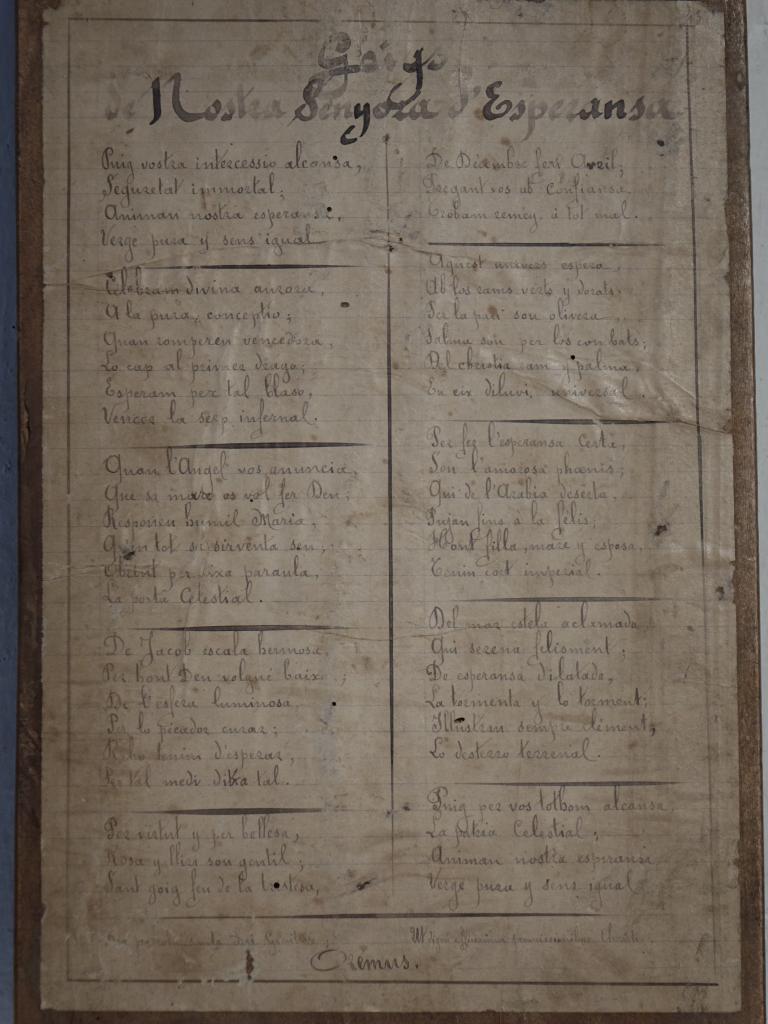 Goigs
de Nostra Senyora d'Esperansa
Puig vostra intercessio alcansa,
Seguretat inmortal;
Animan nostra esperansa,
Verge pura y sens igual
Celebram divina aurora,
A la pura, conceptio;
Quan romperen vencedora,
Lo cap al primer drago;
Esperam per tal blaso,
Vencer la serp infernal.
Quan l'Angel vos anuncia,
Que sa mare os vol fer Deu;
Responeu humil Maria,
Qu'en tot sa sirventa seu;
Obrint per eixa paraula,
La porta Celestial.
De Jacob escala hermosa,
Per hont Deu volgué baixa ;
De l'esfera luminosa,
Per lo pecador curar;
tenim d'esperar,
Per tal medi dixa tal.
Per virtut y per bellesa,
Rosa y lliri sou gentil;
Sant goig feu de la tristesa,
De Décembre fers Avril;
Pregant vos ab confiansa,
Trobam remey á tot mal.
Aquest univers espera,
Ab los rams verts y dorats,
Per la pau sou olivera,
Palma sou per los combats;
Del christia am y palma,
En eix diluvi, universal.
Per fer l'esperansa certa,
Sou l'amorosa phœnis;
Qui de l'Arabia deserta,
Pujan fins á la felis;
Hont filla, mare y esposa,
Tenin cort imperial.
Del mar estela aclamada,
Qui serena felisment;
De esperansa dilatada,
La tormenta y lo torment;
Illustran sempre clement,
Lo desterro terrenal.
Puig per vos tothom alcansa,
La patria Celestial;
Animan nostra esperansa
Verge pura y sens igual
Ora pro nobis sancta Dei Genitrix;
Ut digni efficiamur promissionibus Christi.
Oremus.